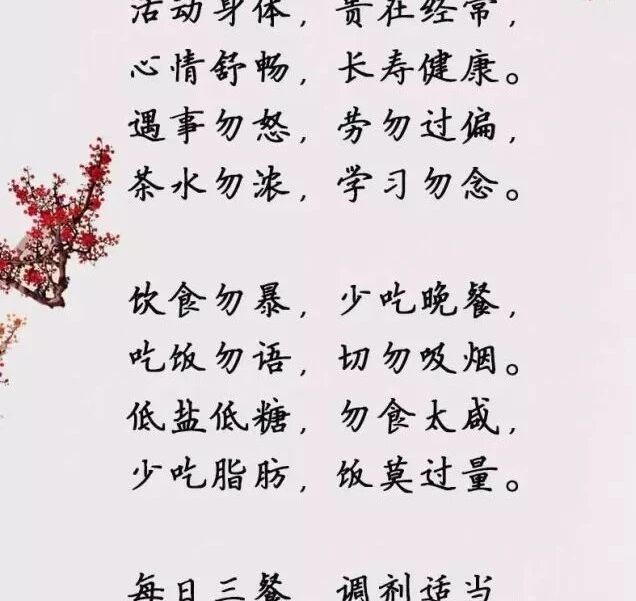 活动身体，贵在经常，
心情舒畅，长寿健康。
遇事勿怒，劳勿过偏，
茶水勿浓，学习勿念。
饮食勿暴，少吃晚餐，
吃饭勿语，切勿吸烟。
低盐低糖，勿食太咸，
少吃脂肪，饭莫过量。
每日三餐，调剂适当，